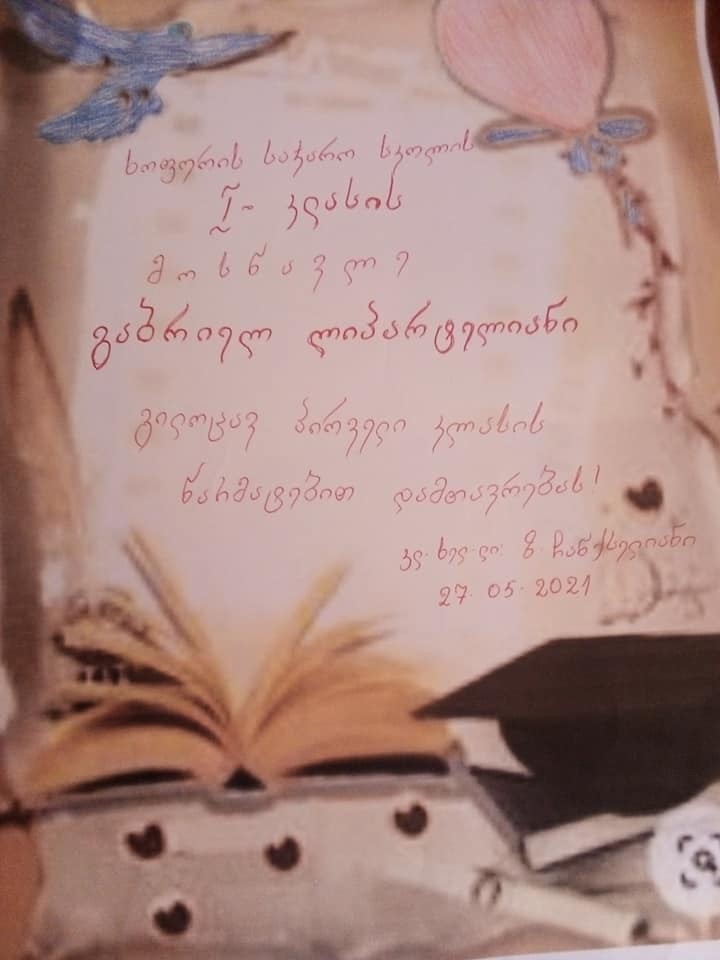 ხოფურის საჯარო სკოლის
I - კლასის
მოსწავლე
გაბრიელ ლიპარტელიანი
გილოცავ პირველი კლასის
წარმატებით დამთავრებას!
კლ. ხელ-ლი: ზ. ჩანქსელიანი
27. 05. 2021